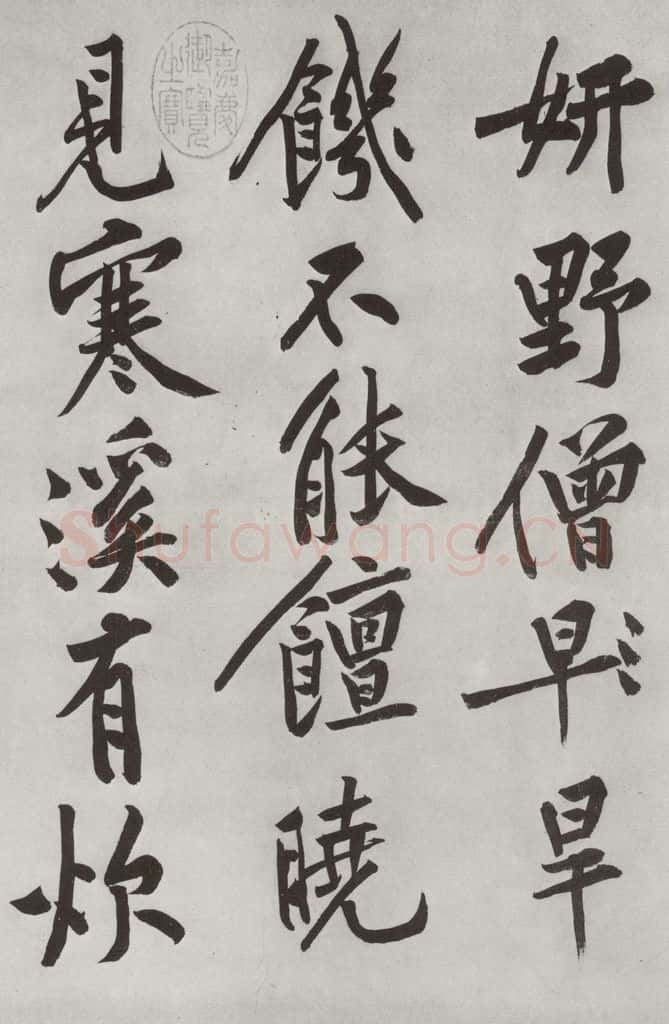 妍野僧早旱
饑不能饘曉
見寒溪有炊
嘉慶
御覽
之寶
Shufawang.CN